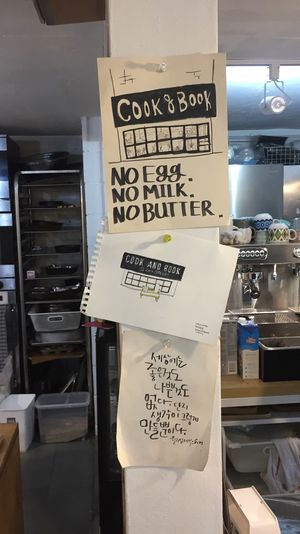 COOK & BOOK
NO EGG.
NO MILK.
NO BUTTER.
COOK AND BOOK
세상에는
좋은것도
나쁜것도
없다. 단지
생각이 그렇게
만들뿐이다.